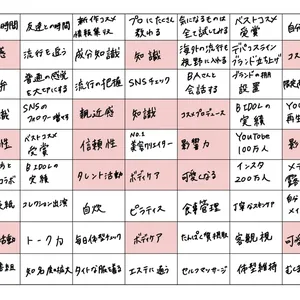 時間
友達との時間
新作コスメ
情報集収
プロにたくさん
教わる
気になるものは
全て試してみる
ベストコスメ
受賞
感
流行を追う
成分知識
知識
海外の流行も
視野に入れる
デパコスライン
ブランド立ち上げ
コス
普通の感覚
を大事にする
流行の把握
SNSチェック
BAさんと
会話する
ブランドの棚
設置
限定
SNSの
フォロワー増やす
親近感
知識
コスメプロデュース
B IDOLの
実績
再生
性
ベストコスメ
受賞
信頼性
No.1
美容クリエイター
影響力
YouTube
100万人
影
コラボ
B IDOLの
実績
タレント活動
ボディケア
可愛くなる
インスタ
200万人
メデ
露
紙
コレクション出演
自炊
ピラティス
食事管理
丁寧なスキンケア
自分
メイ
活動
トーク力
毎日体型チェック
ボディケア
たんぱく質摂取
客観視
可愛
番組
知名度の拡大
タイトな服を着る
エステに通う
セルフマッサージ
体型維持